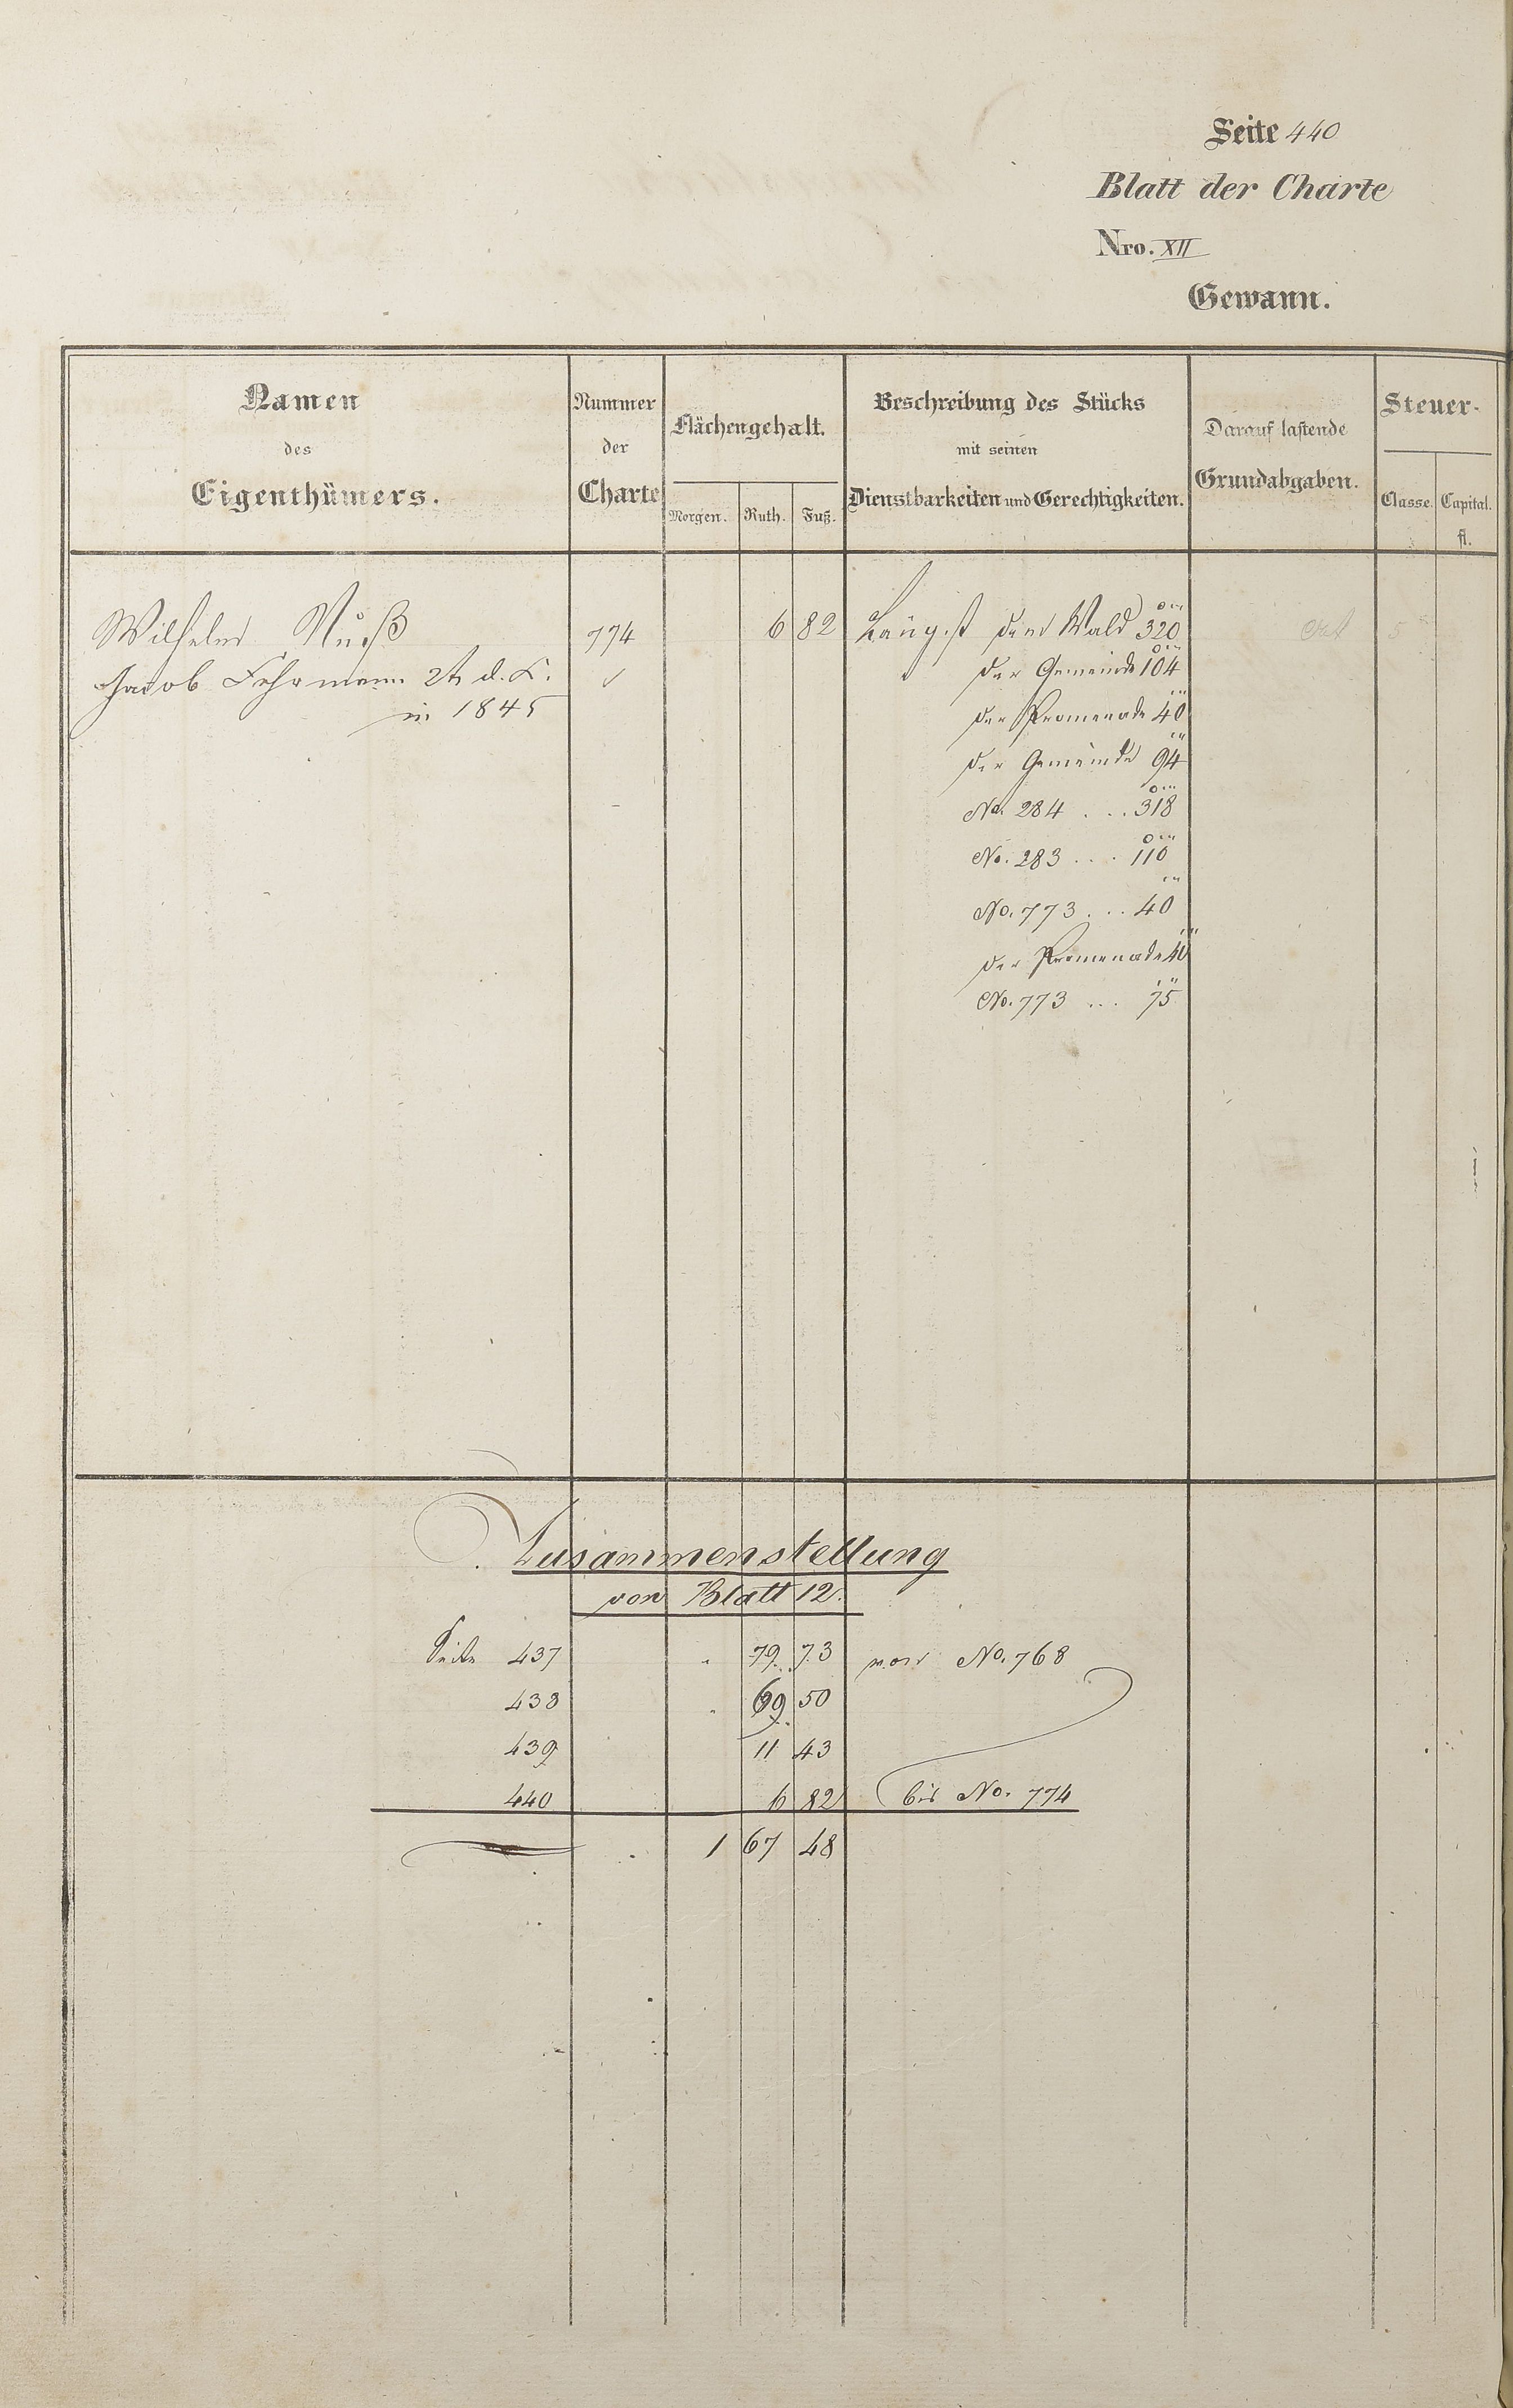 Seite 440
Blatt der Charte
Nro. XII
Gewann.
Namen des Eigenthümers.
Nummer der Charte
Flächengehalt.
Morgen. Ruth. Fuß.
Beschreibung des Stücks mit seinen Dienstbarkeiten und Gerechtigkeiten.
Darauf lastende Grundabgaben.
Steuer-
Classe. Capital. fl.
Wilhelm Nuß 774 6 82 Längst dem Wald 320
Jacob Fehrmann 2t d. K. der Gemeinde 104
in 1845 der Promenade 40
der Gemeinde 94
No. 284 . . . 318
No. 283 . . . 110
No. 773 . . . 40
der Promenade 40
No. 773 . . . 75
Zusammenstellung
von Blatt 12.
Seite 437 " 79 73 von No. 768
438 " 69 50
439 11 43
440 6 82 bis No. 774
1 67 48